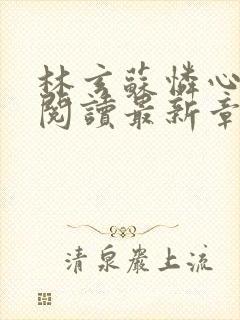 林玄蘇憐心
閱讀最新章
清泉巖上流